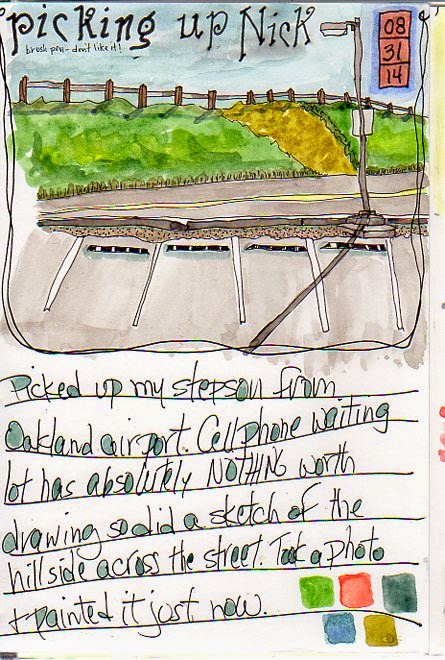 picking up Nick
brush pen - don't like it!
08
31
14
Picked up my stepson from
Oakland airport. Cell phone waiting
lot has absolutely NOTHING worth
drawing so did a sketch of the
hillside across the street. Took a photo
& painted it just now.